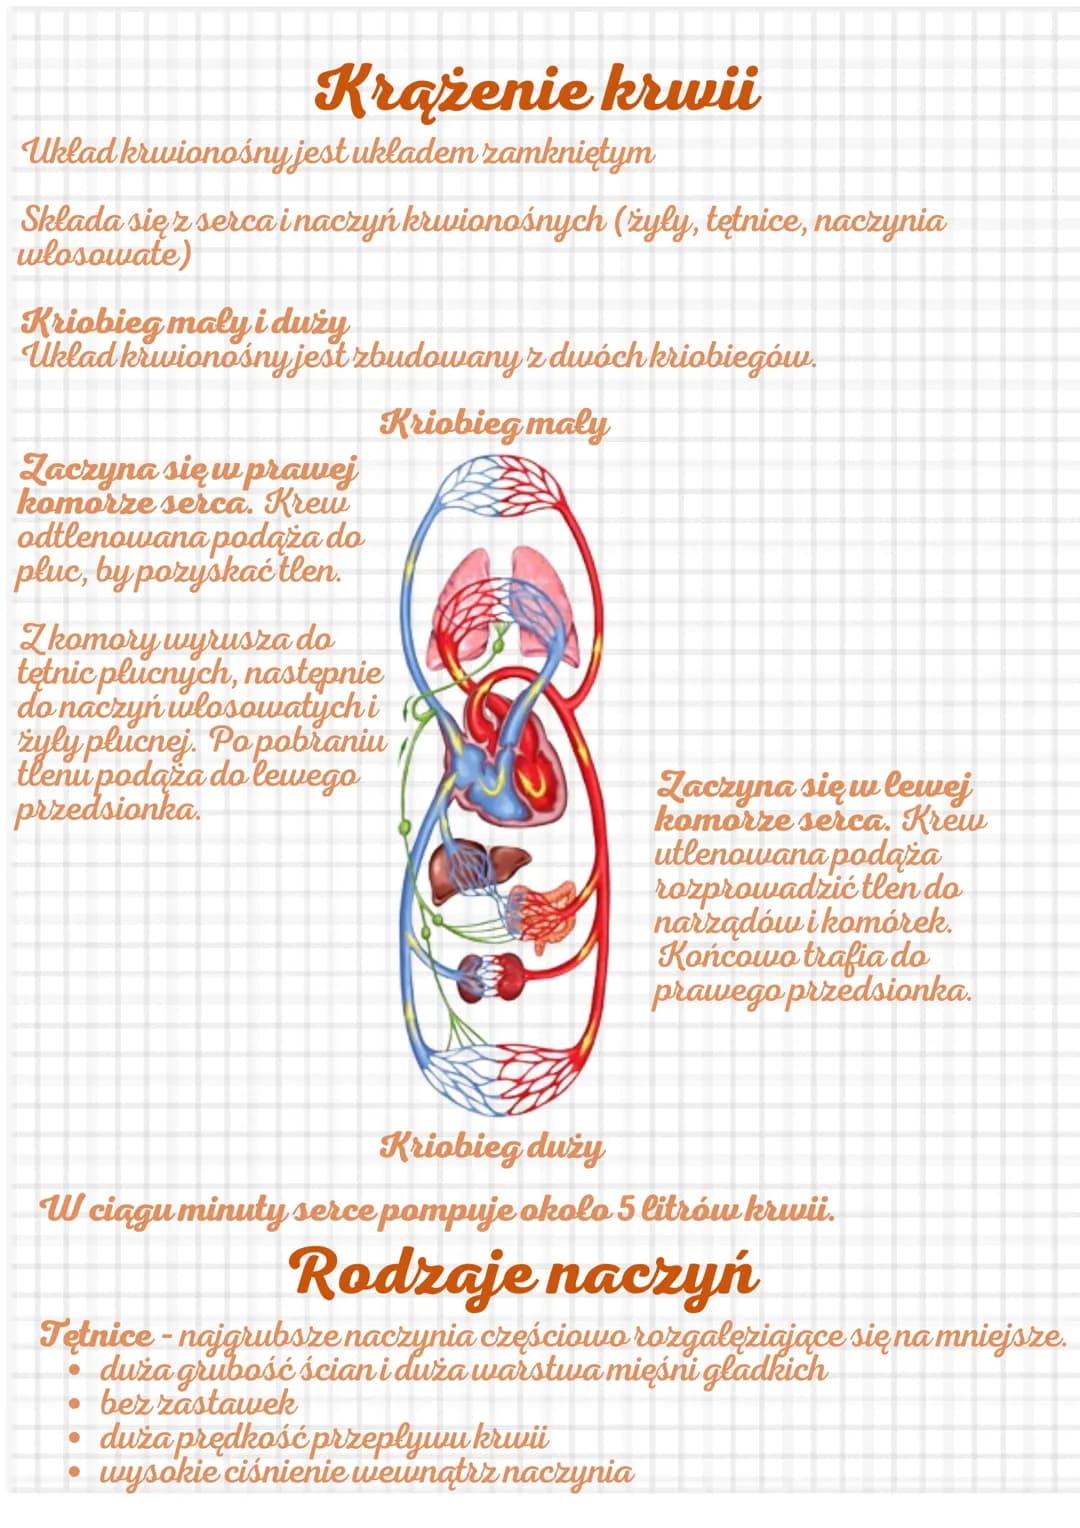 Krążenie krwii
Układ krwionośny jest układem zamkniętym
Składa się z serca i naczyń krwionośnych (żyły, tętnice, naczynia
włosowate)
Kriobieg mały i duży
Układ krwionośny jest zbudowany z dwóch kriobiegów.
Kriobieg mały
Zaczyna się w prawej
komorze serca. Krew
odtlenowana podąża do
płuc, by pozyskać tlen.
Z komory wyrusza do
tętnic płucnych, następnie
do naczyń włosowatych i
żyły płucnej. Po pobraniu
tlenu podąża do lewego
przedsionka.
Zaczyna się w lewej
komorze serca. Krew
utlenowana podąża
rozprowadzić tlen do
narządów i komórek.
Końcowo trafia do
prawego przedsionka.
Kriobieg duży
W ciągu minuty serce pompuje około 5 litrów krwii.
Rodzaje naczyń
Tętnice - najgrubsze naczynia częściowo rozgałęziające się na mniejsze.
• duża grubość ścian i duża warstwa mięśni gładkich
• bez zastawek
• duża prędkość przepływu krwii
• wysokie ciśnienie wewnątrz naczynia